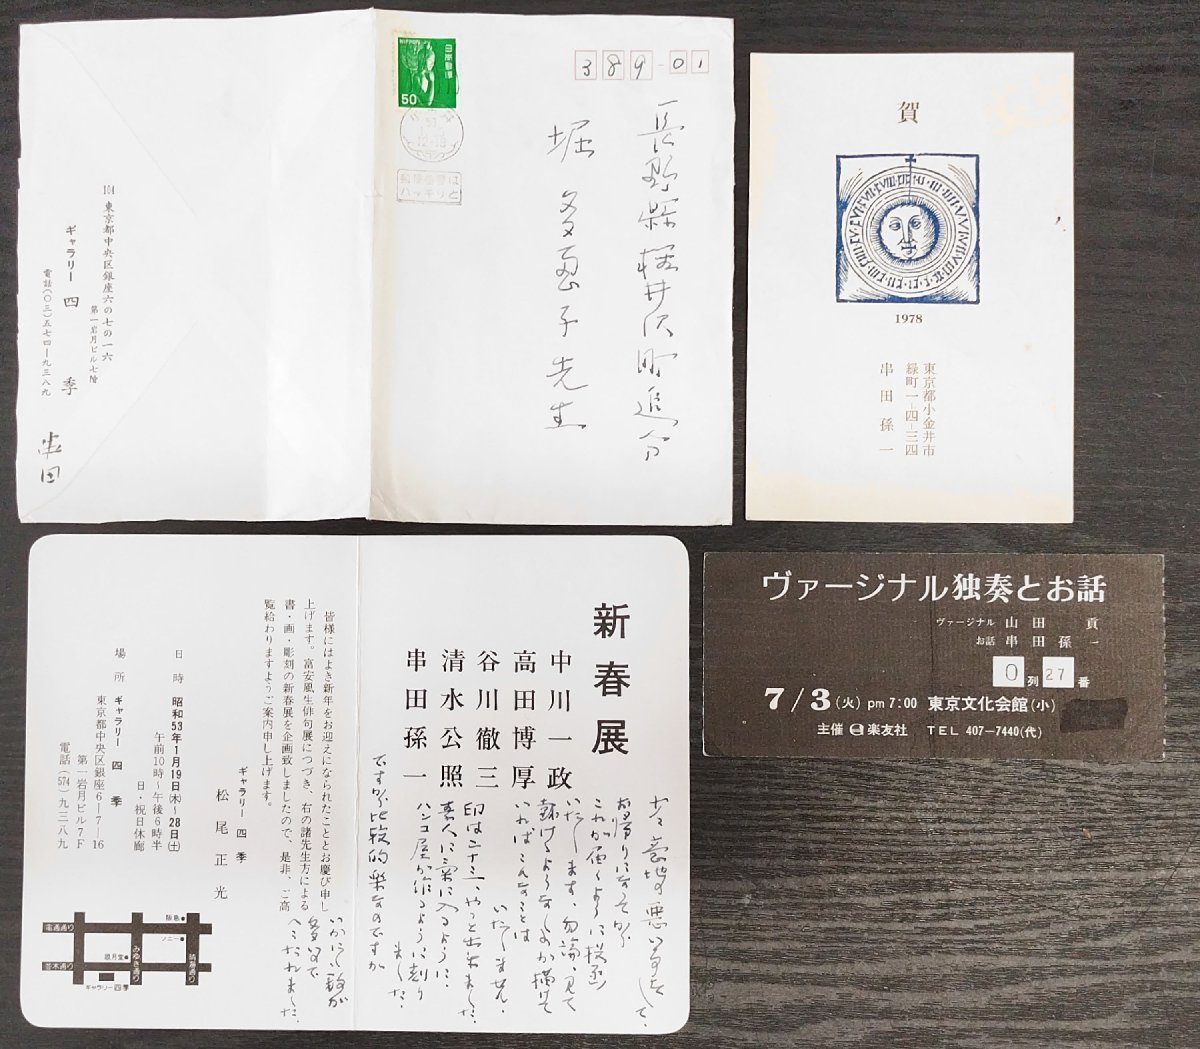 104 東京都中央区銀座六の七の一六
第一岩月ビル七階
ギャラリー 四 季
電話(〇三)五七四―九三八九
串田
NIPPON
日本郵便
50
389-01
長野県軽井沢町追分
堀 多恵子先生
郵便番号は
ハッキリと
賀
1978
東京都小金井市
緑町一―四―三四
串田孫一
新春展
中川一政
高田博厚
谷川徹三
清水公照
串田孫一
皆様にはよき新年をお迎えになられたこととお慶び申し
上げます。富安風生俳句展につづき、右の諸先生方による
書・画・彫刻の新春展を企画致しましたので、是非、ご高
覧給わりますようご案内申し上げます。
ギャラリー 四 季
松尾正光
日時 昭和53年1月19日(木)〜28日(土)
午前10時〜午後6時半
日・祝日休廊
場所 ギャラリー 四 季
東京都中央区銀座6―7―16
第一岩月ビル7F
電話(574)九三八九
阪急
ソニー
電通通り
みゆき通り
晴海通り
並木通り
風月堂
ギャラリー四季
意地の悪い
お帰りになってから
これが届くように投函
いたします、勿論、見て
いればこんなことは
いたしません。
印は二十三、やっと出来ました。
素人に気に入るように、
ハンコ屋が作るように刻り
ました。
ですから比較的楽なのですが
いかにも数が
多いので
へこたれました。
ヴァージナル独奏とお話
ヴァージナル 山田 貢
お話 串田孫一
0列27番
7/3(火) pm7:00 東京文化会館(小)
主催 楽友社 TEL 407-7440(代)